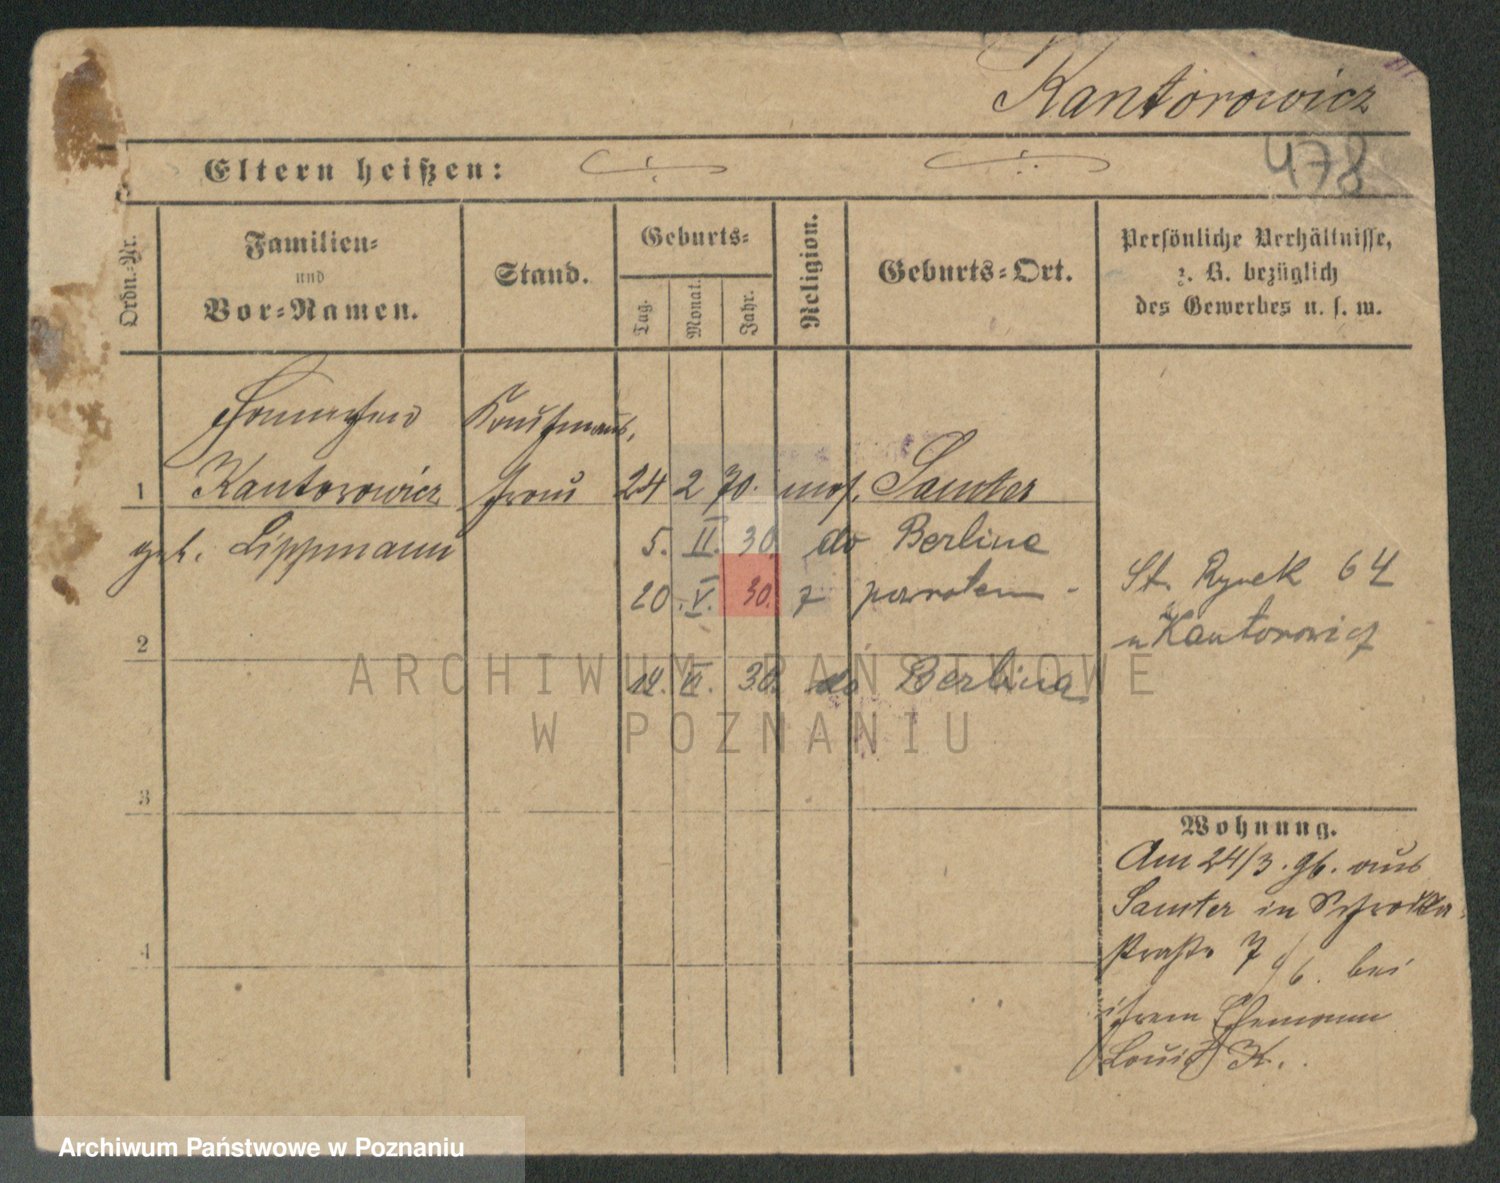 Kantorowicz
478
Eltern heißen:
Ordn.-Nr.
Familien-
und
Vor-Namen.
Stand.
Geburts-
Tag.
Monat.
Jahr.
Religion.
Geburts-Ort.
Persönliche Verhältnisse,
z. B. bezüglich
des Gewerbes u. s. w.
Kaufmanns,
1 Kantorowicz frau 24 2 70. mos. Samter
geb. Lippmann 5. II. 30. do Berlina
20. V. 30. z powrotem -
St. Rynek 64
u Kantorowicz
2
14. 30. do Berlina
3
4
Wohnung.
Am 24/3. 96. aus
Samter in
straße 7 /6. bei
ihrem Ehemann
Louis K.
ARCHIWUM PAŃSTWOWE
W POZNANIU
Archiwum Państwowe w Poznaniu